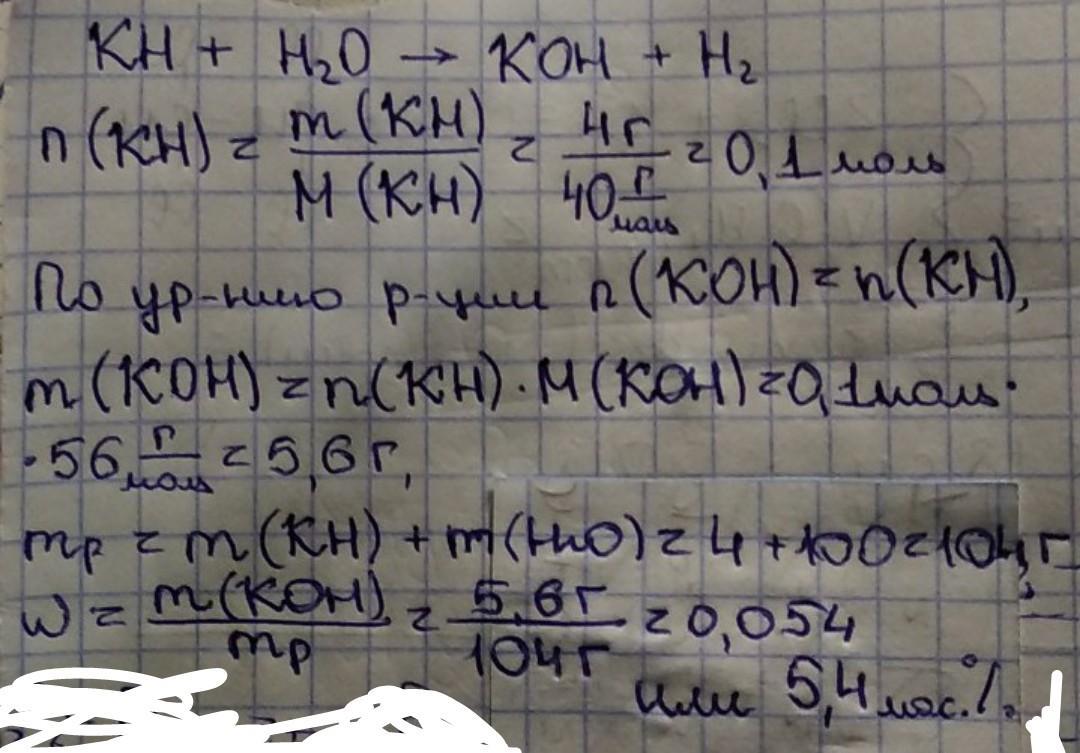 KH + H₂O → KOH + H₂
n(KH) = m(KH)/M(KH) = 4г/40 г/моль = 0,1 моль
По ур-нию р-ции n(KOH) = n(KH),
m(KOH) = n(KH)·M(KOH) = 0,1 моль·
·56 г/моль = 5,6 г,
mр = m(KH) + m(H₂O) = 4 + 100 = 104 г,
w = m(KOH)/mр = 5,6 г/104 г = 0,054
или 5,4 мас.%.